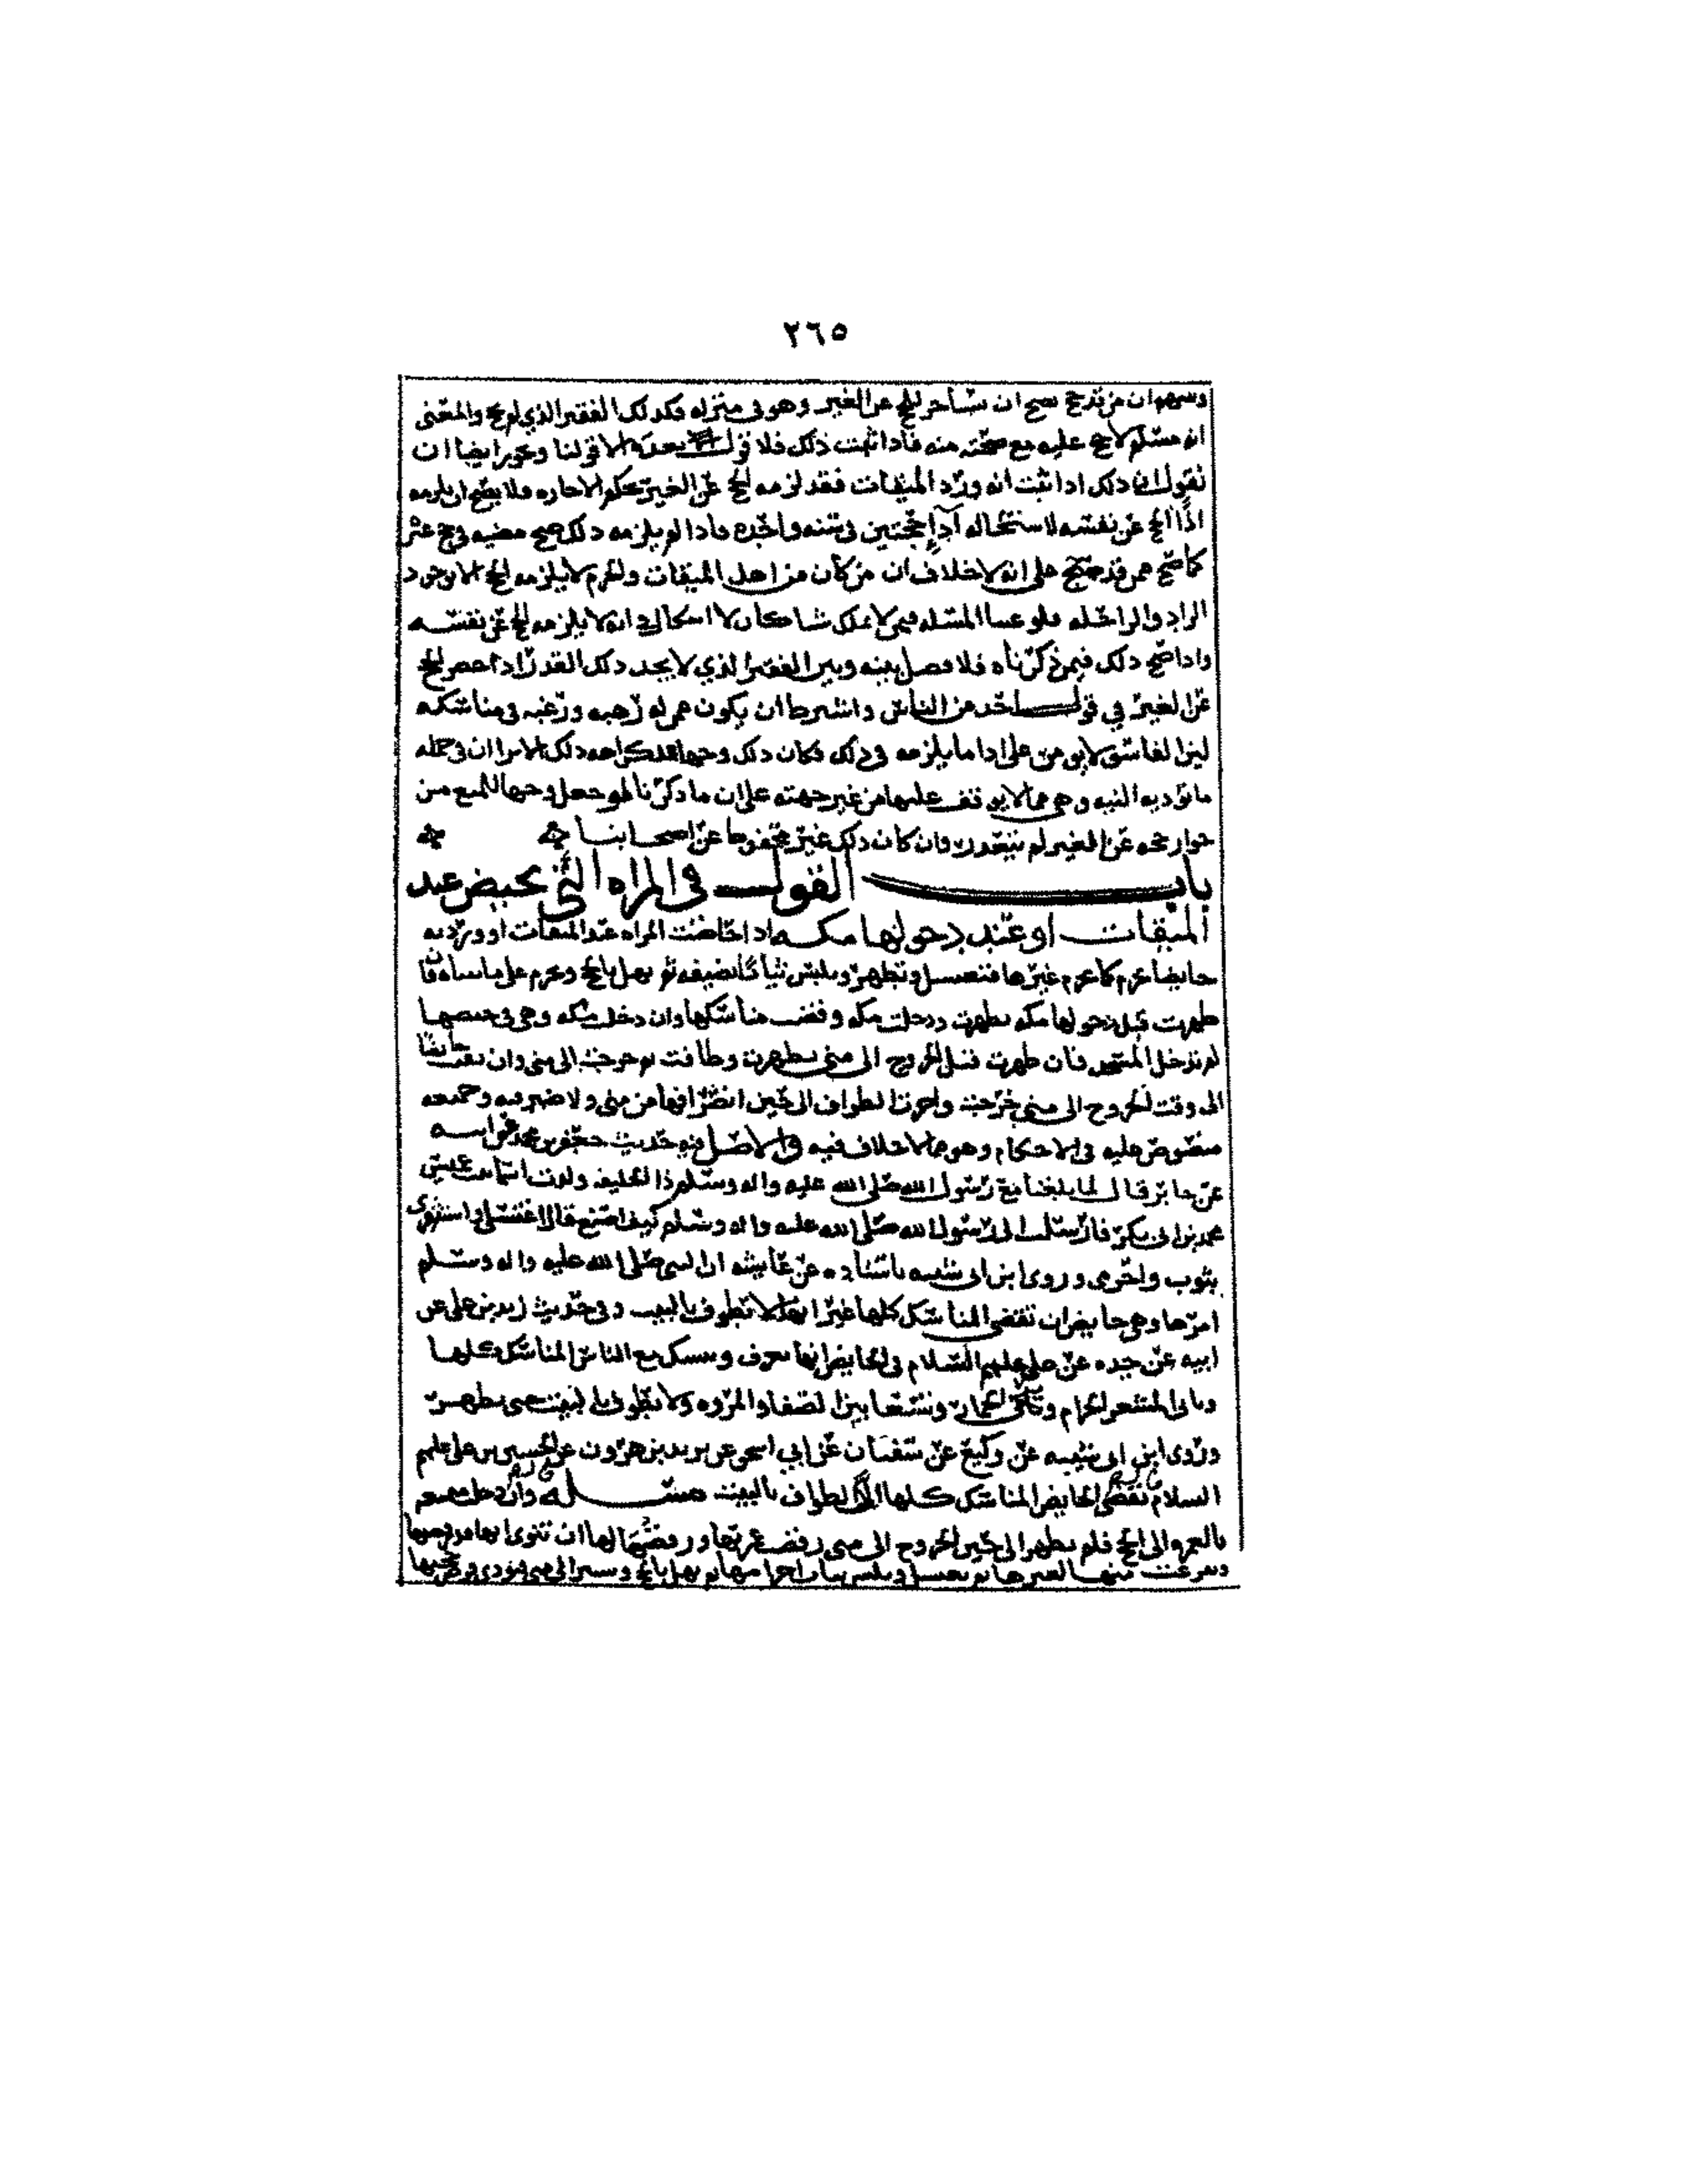 ٢٦٥
ان من قد حج يصح ان للحج عن الغير وهو في منزله فكذلك الفقير الذي لم يحج والمعنى
انه مسلم لا حج عليه مع صحته منه فاذا ثبت ذلك فلا قول بعده الا قولنا ايضا ان
نقول ان ذلك اذا ثبت انه ورد الميقات فقد لزمه الحج عن الغير بحكم الاجاره فلا يصح ان يلزمه
اذا الحج عن نفسه لاستحاله ادا حجتين في سنه واحده فاذا لم يلزمه ذلك صح مضيه في حج
كما صح قد حج على انه لا خلاف ان من كان من اهل الميقات والحرم لا يلزمه الحج الا بوجود
الزاد والراحله المسله لا يملك شيا لا اشكال انه لا يلزمه الحج عن نفسه
واذا صح ذلك فيمن ذكرناه فلا فصل بينه وبين الفقير الذي لا يجد ذلك القدر اذا للحج
عن الغير في قول احد من الناس واشترطنا ان يكون ممن له رهبه ورغبه في مناسكه
لان الفاسق لا يؤمن على ادا ما يلزمه في ذلك فكان ذلك ذلك الامر ان في جمله
ما النيه وهي مما لا يوقف عليها من غير جهته على ان ما ذكرناه لو جعل وجها للمنع من
جواز حجه عن الغير لم يبعد وان كان ذلك غير محفوظ عن اصحابنا
باب القول في المراه التي تحيض عند
الميقات او عند دخولها مكه اذا حاضت المراه عند الميقات او وردته
حايضا تحرم كما يحرم غيرها فتغتسل وتطهر وتلبس ثيابا نظيفه ثم تهل بالحج وتحرم على ما بيناه فان
طهرت قبل دخولها مكه تطهرت ودخلت مكه وقضت مناسكها وان دخلت مكه وهي في حيضها
لم تدخل المسجد فان طهرت قبل الخروج الى منى تطهرت وطافت ثم خرجت الى منى وان بقيت حايضا
الى وقت الخروج الى منى خرجت واخرت الطواف الى حين انصرافها من منى ولا ضير فيه وجميعه
منصوص عليه في الاحكام وهو مما لا خلاف فيه والاصل فيه حديث جعفر بن محمد عن ابيه
عن جابر قال لما بلغنا مع رسول الله صلى الله عليه واله وسلم ذا الحليفه ولدت اسما بنت عميس
محمد بن ابي بكر فارسلت الى رسول الله صلى الله عليه واله وسلم كيف اصنع قال اغتسلي واستثفري
بثوب واحرمي وروى ابن ابي شيبه باسناده عن عايشه ان النبي صلى الله عليه واله وسلم
امرها وهي حايض ان تقضي المناسك كلها غير انها لا تطوف بالبيت وفي حديث زيد بن علي عن
ابيه عن جده عن علي عليهم السلام في الحايض انها تعرف وتنسك مع الناس المناسك كلها
وتاتي المشعر الحرام وترمي الجمار وتسعى بين الصفا والمروه ولا تطوف بالبيت حتى تطهر
وروى ابن ابي شيبه عن وكيع عن سفيان عن ابي اسحق عن يزيد بن هرون عن الحسين بن علي عليهم
السلام تقضي الحايض المناسك كلها الا الطواف بالبيت مسئله وان دخلت
بالعمره الى الحج فلم تطهر الى حين الخروج الى منى رفضت عمرتها ورفضها لها ان تنوي انها
لغيرها ثم تغتسل وتلبس ثياب احرامها ثم تهل بالحج وتسير الى منى فتؤدي فرض حجها